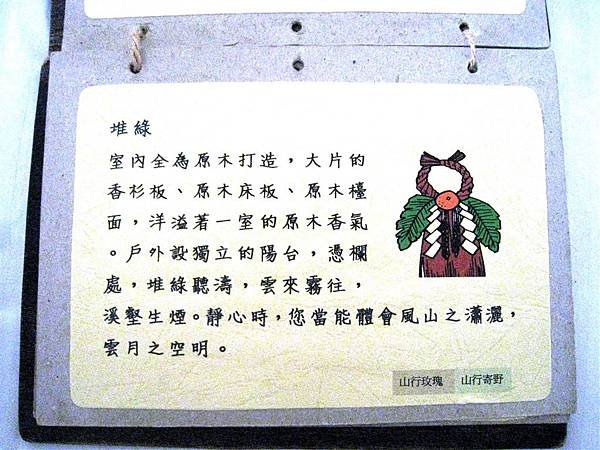 堆綠
室內全為原木打造，大片的
香衫板、原木床板、原木檯
面，洋溢著一室的原木香氣
。戶外設獨立的陽台，憑欄
處，堆綠聽濤，雲來霧往，
溪壑生煙。靜心時，您當能體會風山之瀟灑，
雲月之空明。
山行玫瑰 山行寄野